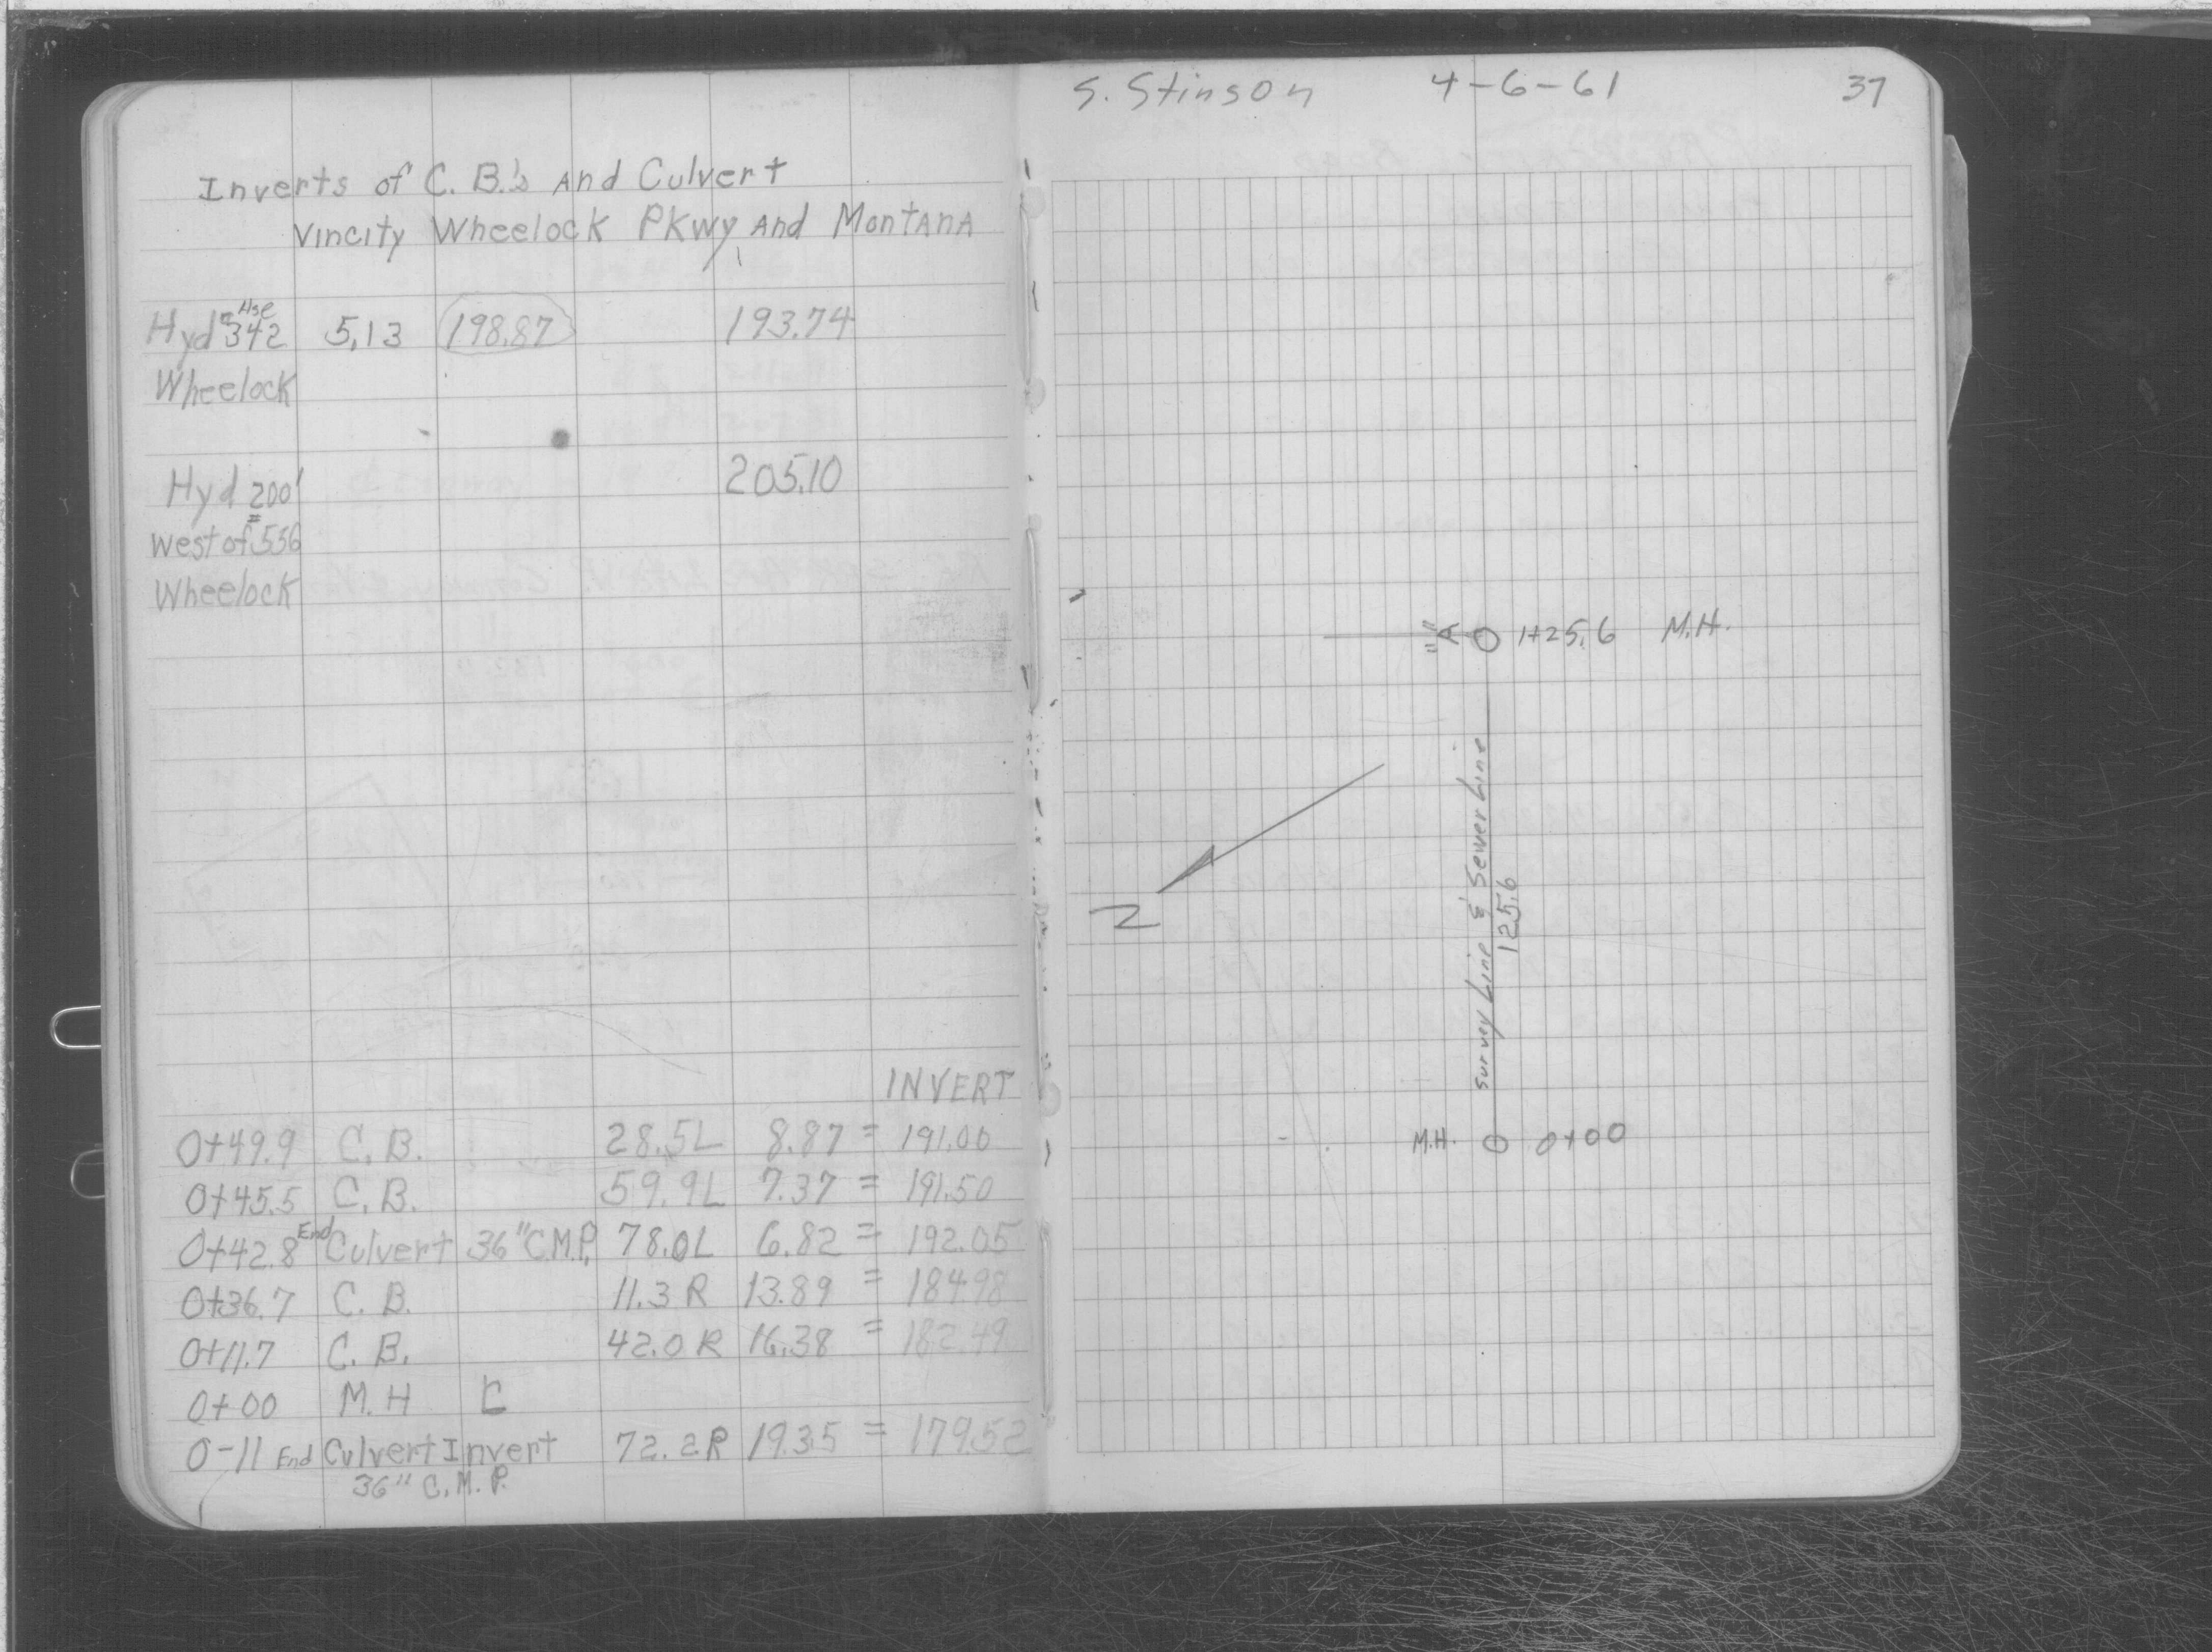 Inverts of C. B.'s And Culvert
Vincity Wheelock PKwy And Montana
Hyd @ Hse 342 5.13 198.87 193.74
Wheelock
Hyd 200' 205.10
West of 556
Wheelock
INVERT
0+49.9 C. B. 28.5L 8.87 = 191.00
0+45.5 C. B. 59.9L 7.37 = 191.50
0+42.8 End Culvert 36" C.M.P. 78.0L 6.82 = 192.05
0+36.7 C. B. 11.3 R 13.89 = 184.98
0+11.7 C. B. 42.0 R 16.38 = 182.49
0+00 M. H
0-11 End Culvert Invert 72.2R 19.35 = 179.52
36" C.M.P.
S. Stinson 4-6-61 37
"A" 1+25.6 M.H.
Survey Line & Sewer Line
125.6
N
M.H. 0+00